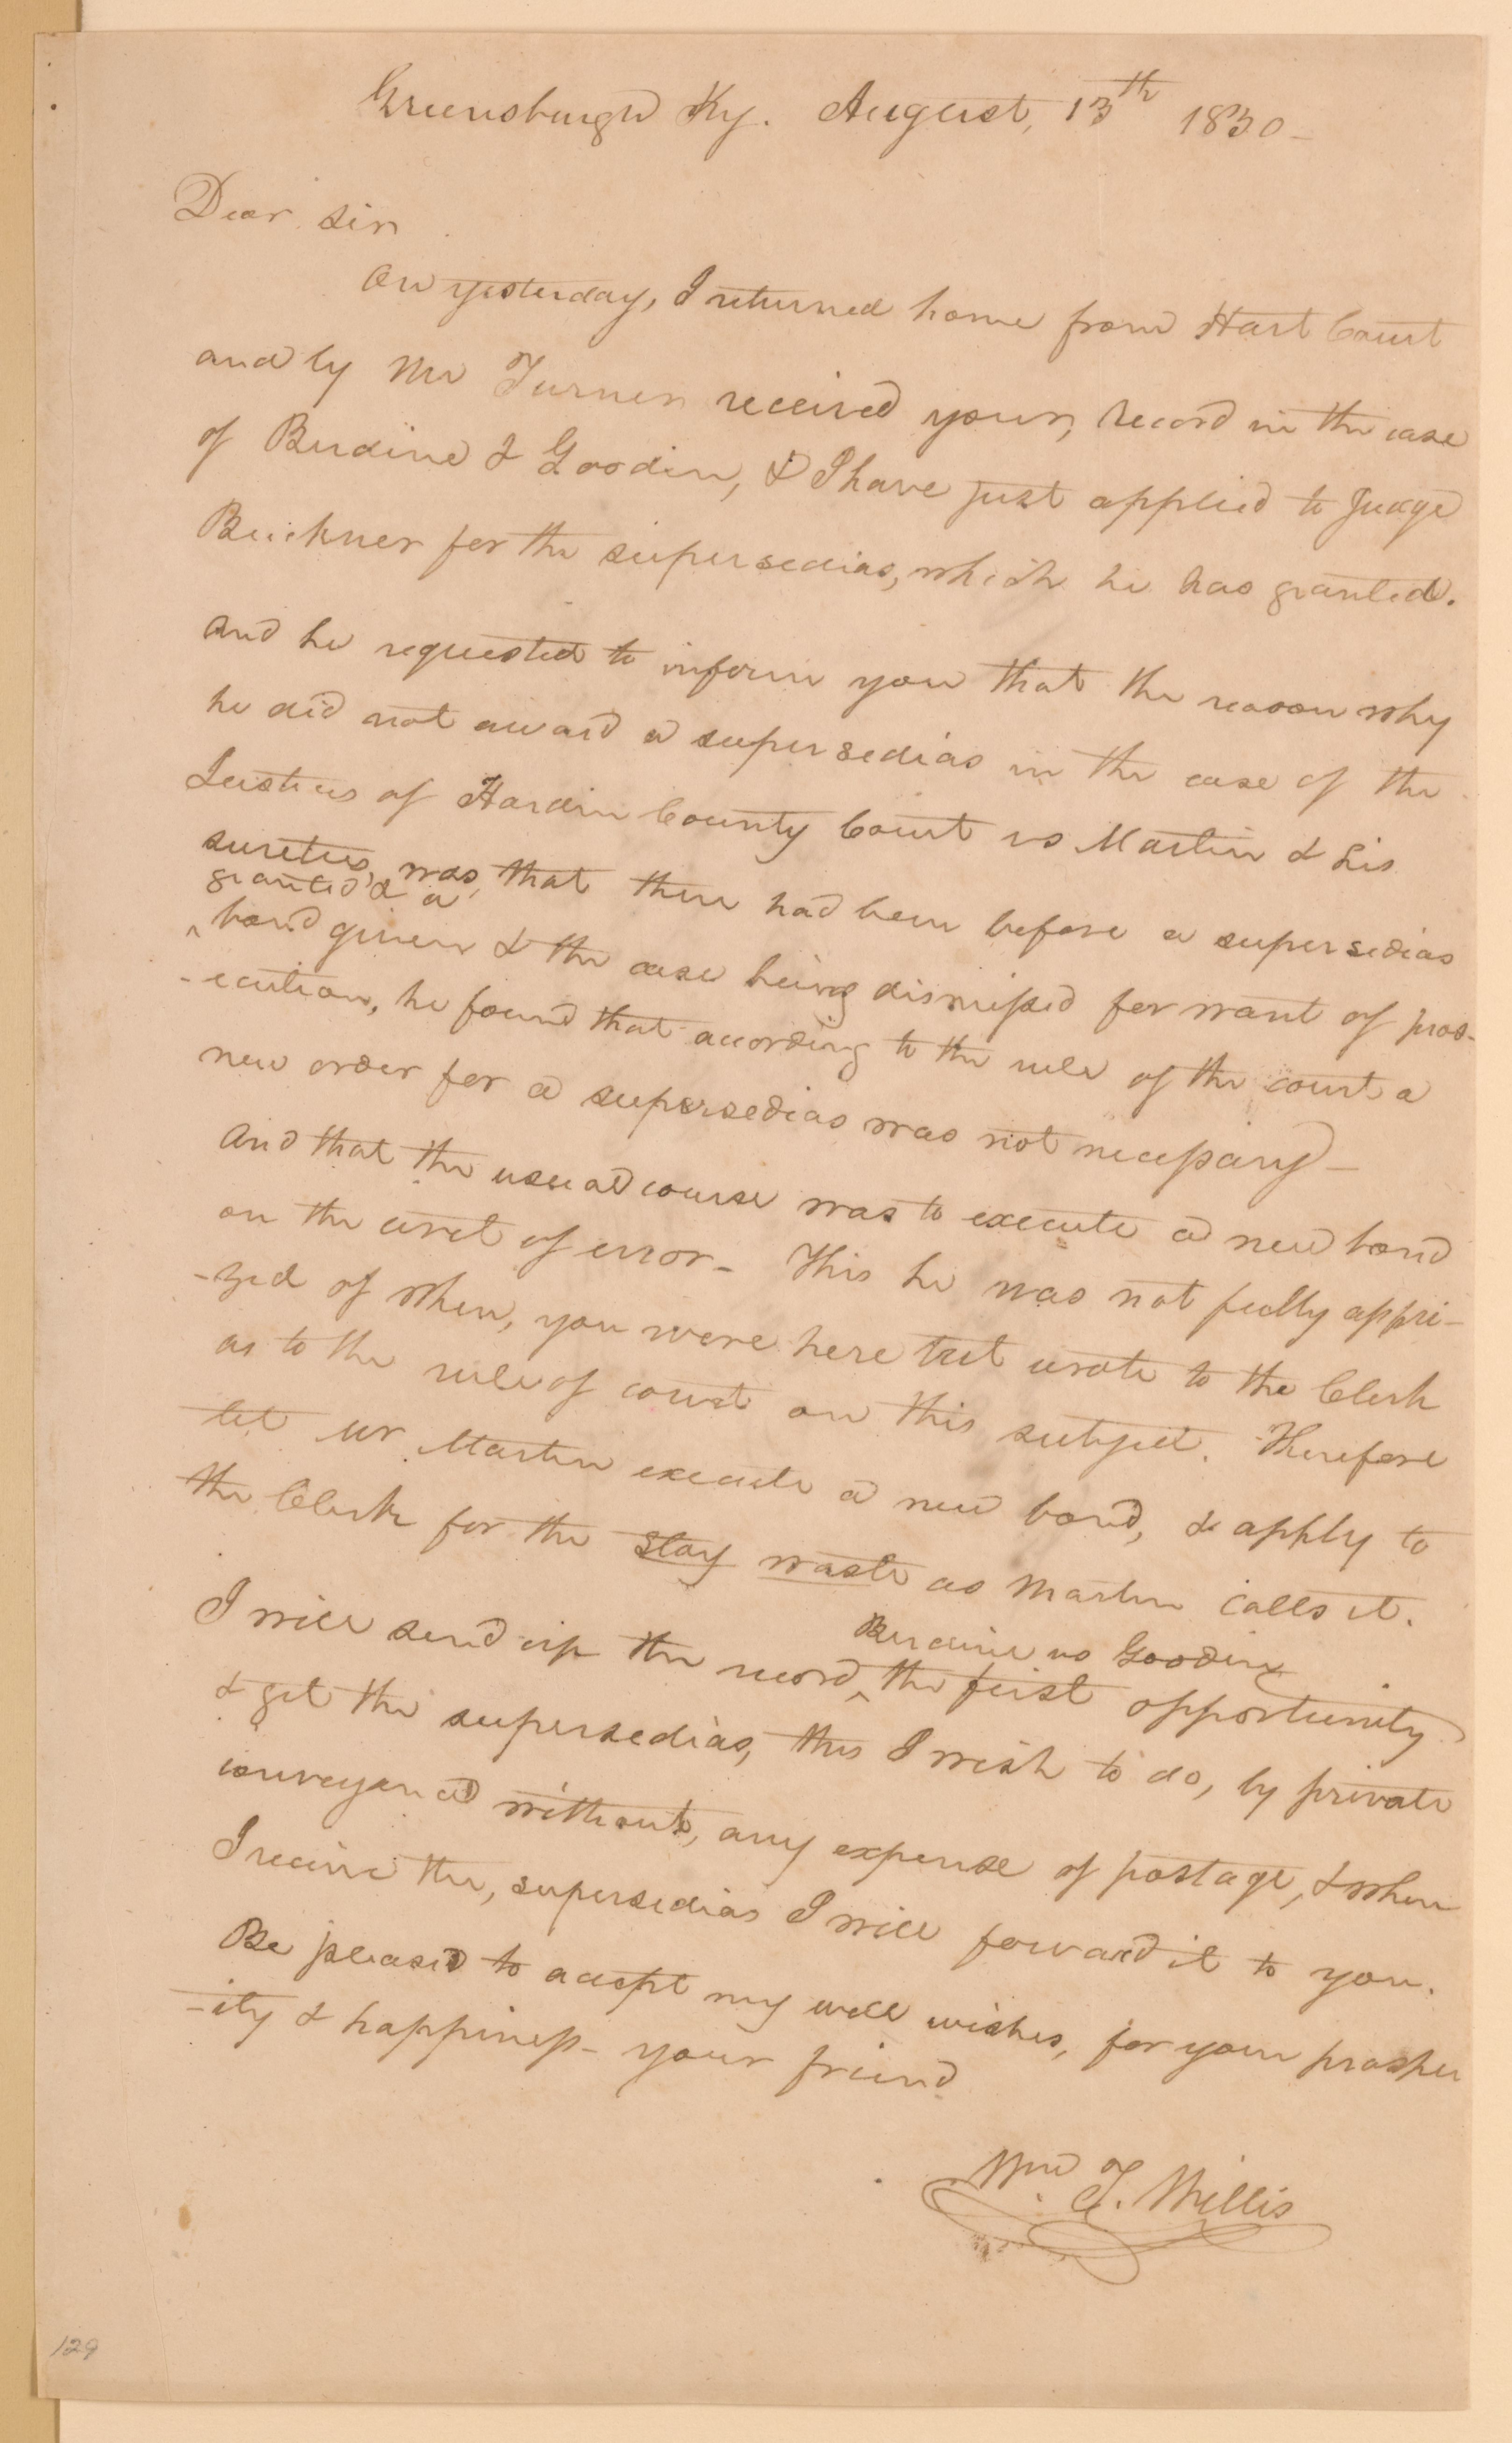 Greensburgh Ky. August, 13th 1830-
Dear Sir
On yesterday, I returned home from Hart Court
and by Mr Turner received your, record in the case
of Burdine & Goodin, & I have just applied to Judge
Buckner for the supersedias, which he has granted.
And he requested to inform you that the reason why
he did not award a supersedias in the case of the
Justices of Hardin County Court vs Martin & his
sureties, was, that there had been before a supersedias
granted & a
^ bond given & the case being dismissed for want of pros-
-ecution, he found that according to the rule of the court a
new order for a supersedias was not necessary-
And that the usual course was to execute a new bond
on the writ of error- This he was not fully appri-
-zed of when, you were here but wrote to the Clerk
as to the rule of court on this subject. Therefore
let Mr Martin execute a new bond, & apply to
the Clerk for the stay waste as Martin calls it.
Burdine vs Goodin
I will send up the record, ^ the first opportunity
& get the supersedias, this I wish to do, by private
conveyance without, any expense of postage, & when
I receive the, supersedias I will forward it to you.
Be pleased to accept my well wishes, for your prosper
-ity & happiness- your friend
Wm T. Willis
129